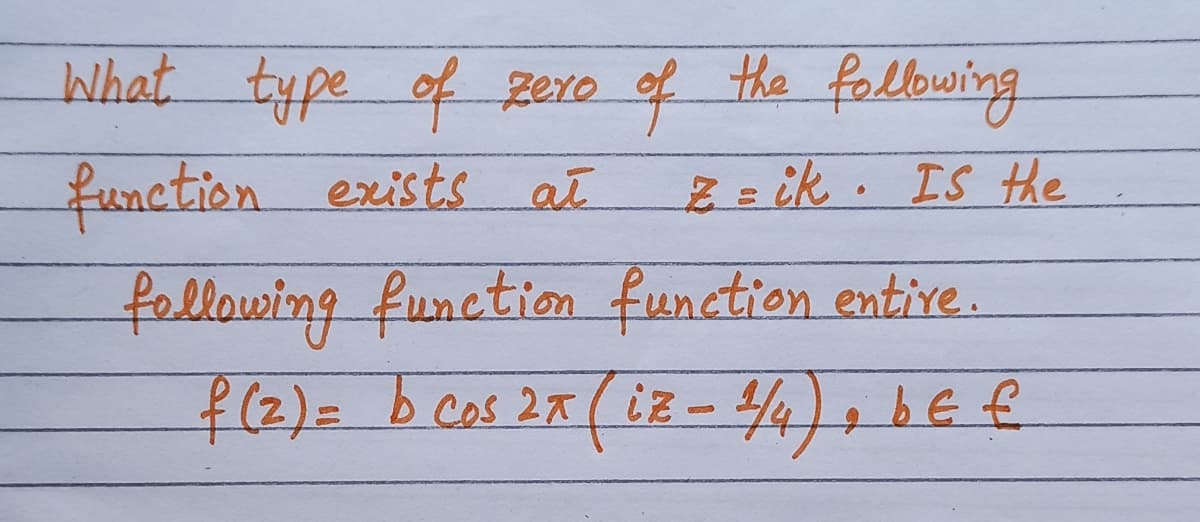 What type of zero of the following
function exists at z = ik. IS the
following function function entire.
f(z) = b cos 2π(iz - 1/4), b ∈ ₤